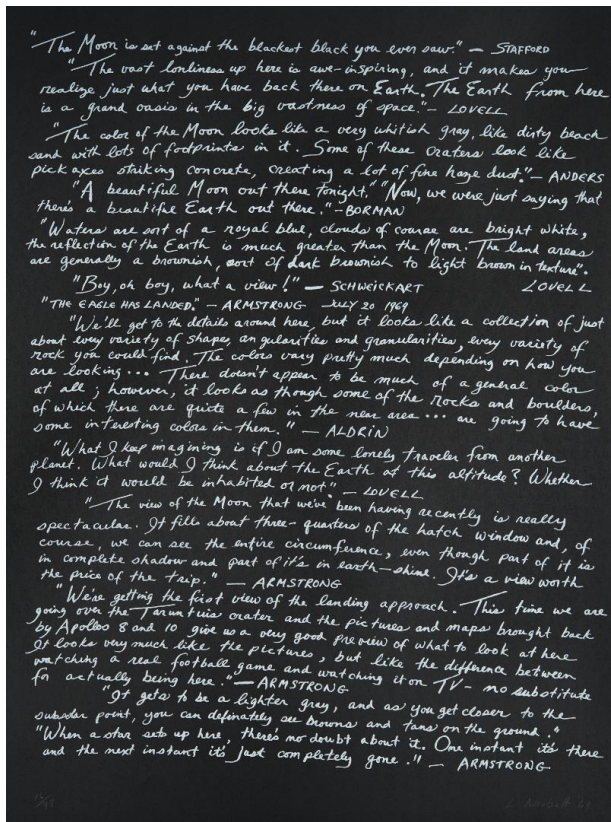 "The Moon is set against the blackest black you ever saw." — STAFFORD
"The vast lonliness up here is awe-inspiring, and it makes you
realize just what you have back there on Earth. The Earth from here
is a grand oasis in the big vastness of space." — LOVELL
"The color of the Moon looks like a very whitish gray, like dirty beach
sand with lots of footprints in it. Some of these craters look like
pick axes striking concrete, creating a lot of fine haze dust." — ANDERS
"A beautiful Moon out there tonight." "Now, we were just saying that
there's a beautiful Earth out there." — BORMAN
"Waters are sort of a royal blue, clouds of course are bright white,
the reflection of the Earth is much greater than the Moon. The land areas
are generally a brownish, sort of dark brownish to light brown in texture".
"Boy, oh boy, what a view!" — SCHWEICKART LOVELL
"THE EAGLE HAS LANDED." — ARMSTRONG JULY 20 1969
"We'll get to the details around here, but it looks like a collection of just
about every variety of shapes, angularities and granularities, every variety of
rock you could find. The colors vary pretty much depending on how you
are looking ... There doesn't appear to be much of a general color
at all; however, it looks as though some of the rocks and boulders,
of which there are quite a few in the near area ... are going to have
some interesting colors in them." — ALDRIN
"What I keep imagining is if I am some lonely traveler from another
planet. What would I think about the Earth at this altitude? Whether
I think it would be inhabited or not." — LOVELL
"The view of the Moon that we've been having recently is really
spectacular. It fills about three-quarters of the hatch window and, of
course, we can see the entire circumference, even though part of it is
in complete shadow and part of it's in earth-shine. It's a view worth
the price of the trip." — ARMSTRONG
"We're getting the first view of the landing approach. This time we are
going over the Taruntius crater and the pictures and maps brought back
by Apollos 8 and 10 give us a very good preview of what to look at here
It looks very much like the pictures, but like the difference between
watching a real football game and watching it on TV - no substitute
for actually being here." — ARMSTRONG
"It gets to be a lighter gray, and as you get closer to the
subsolar point, you can definately see browns and tans on the ground."
"When a star sets up here, there's no doubt about it. One instant it's there
and the next instant it's just completely gone." — ARMSTRONG